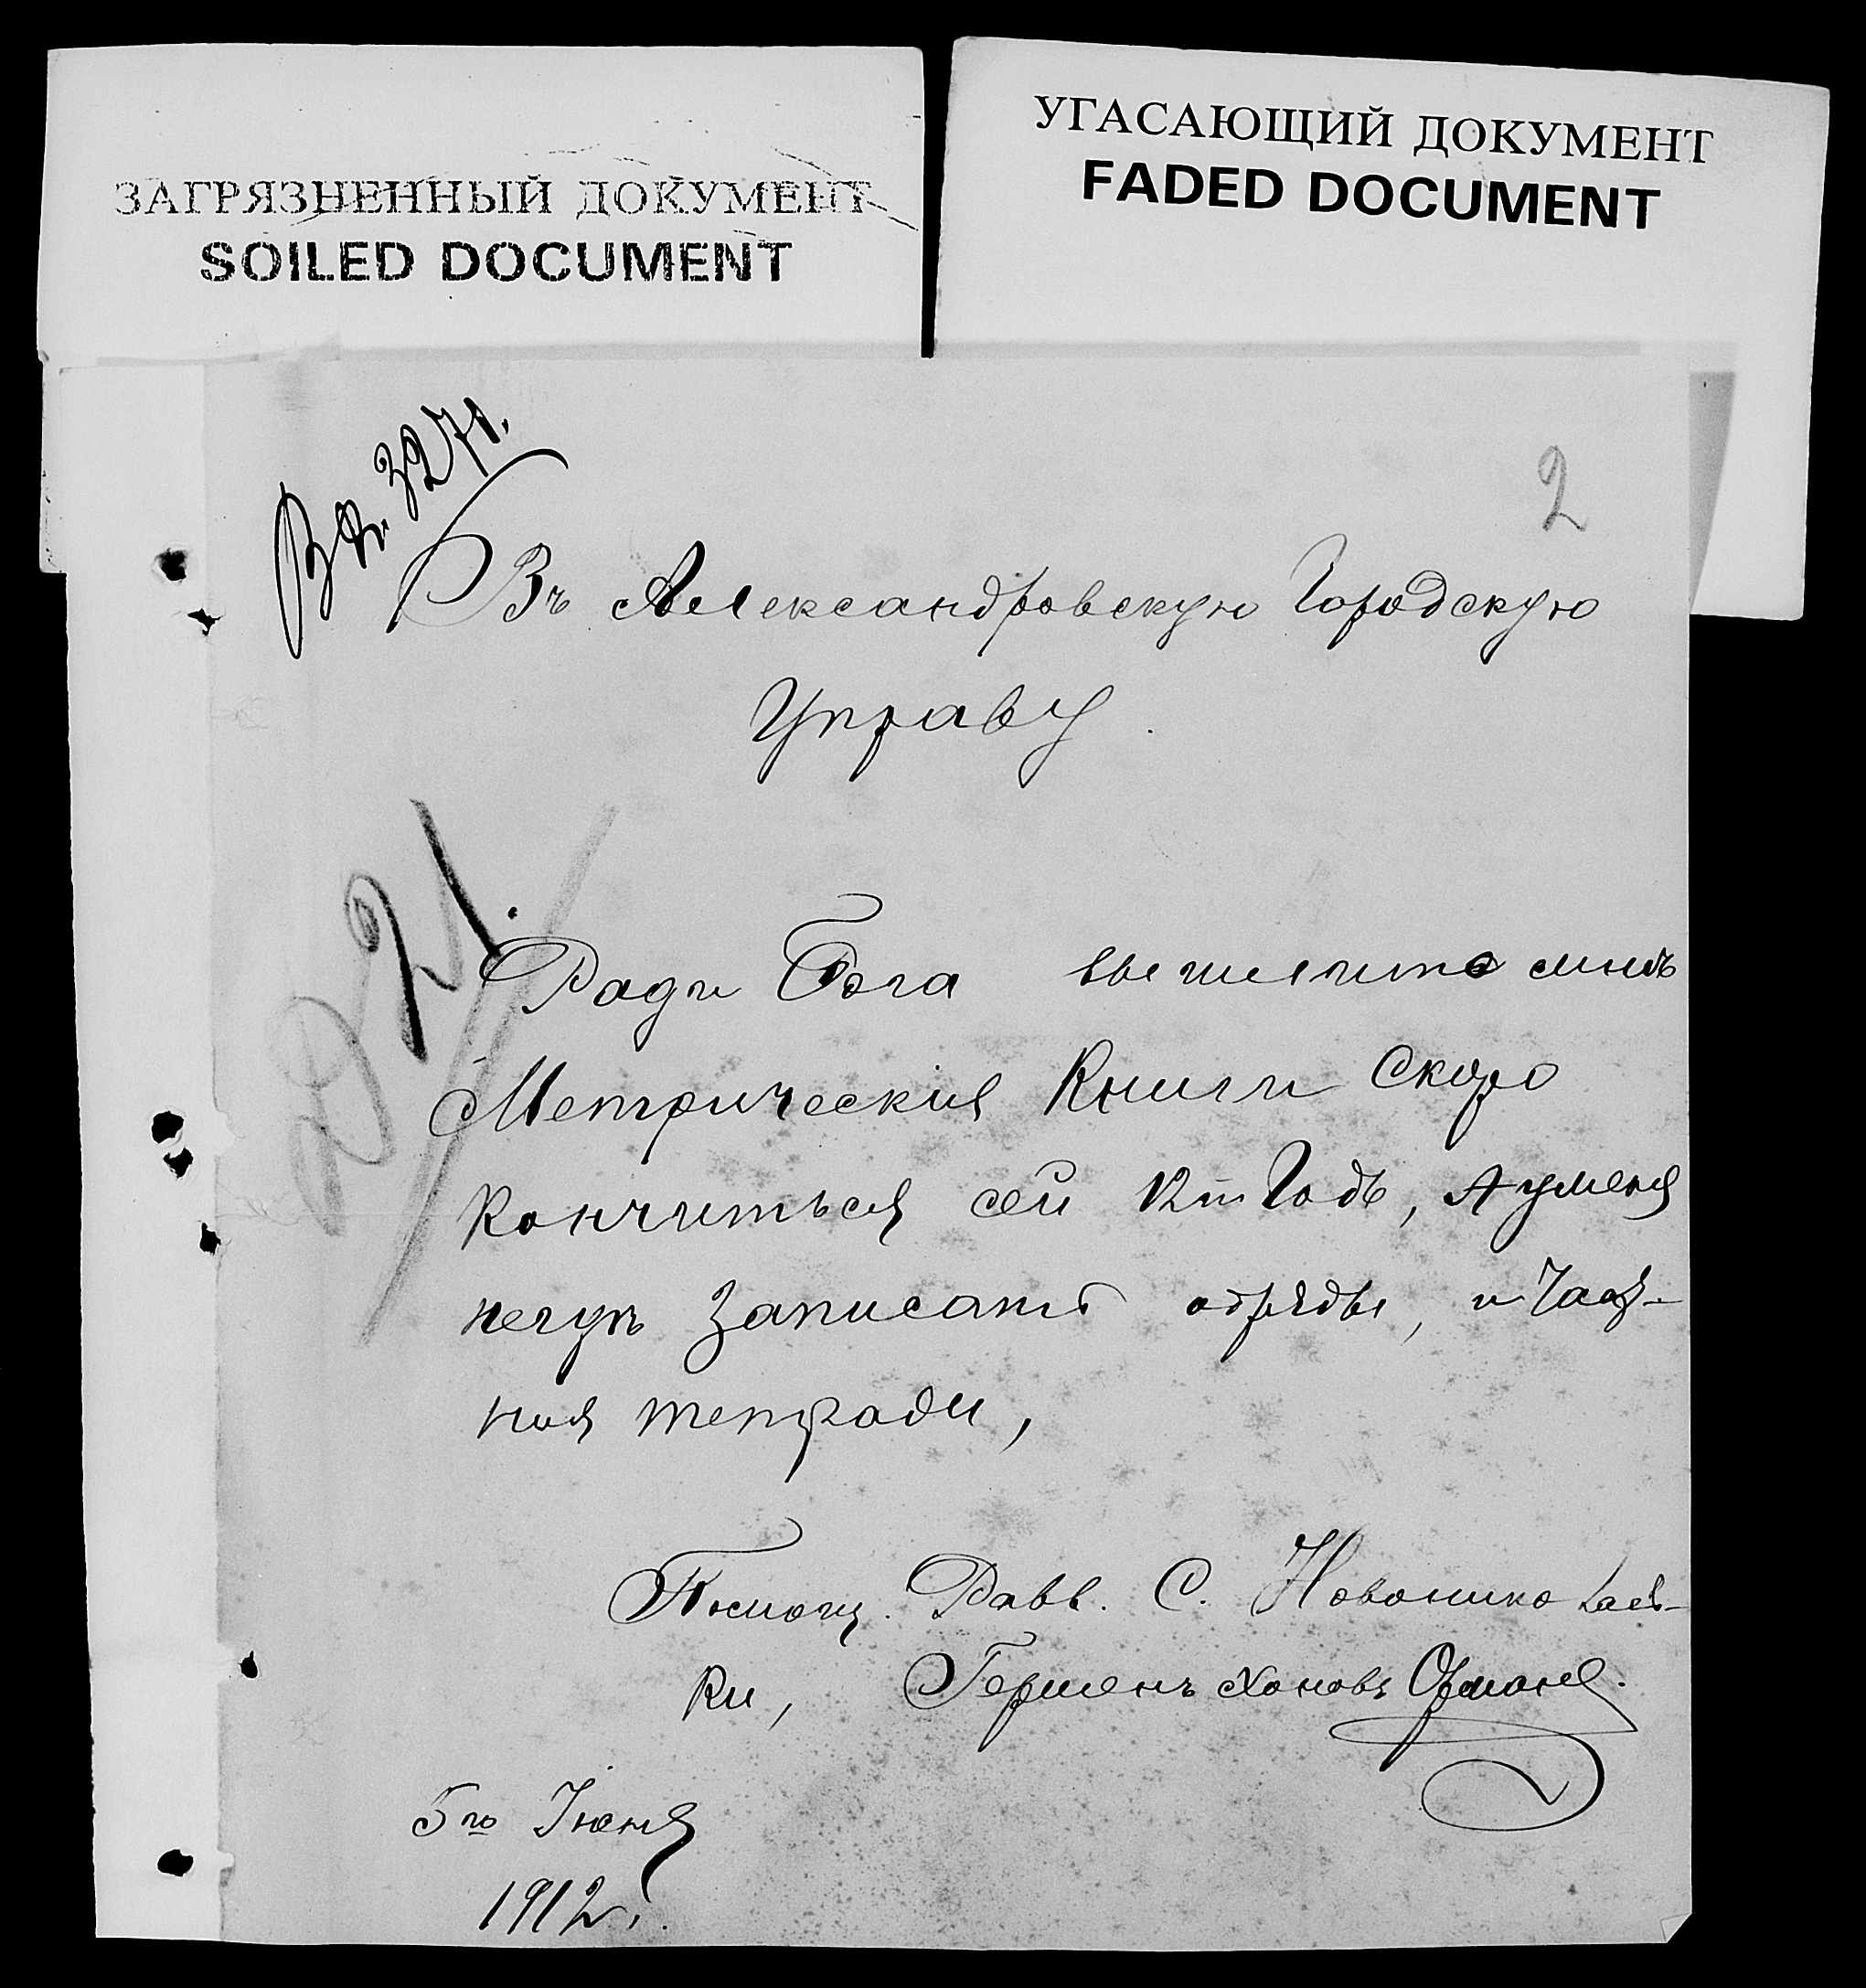 ЗАГРЯЗНЕННЫЙ ДОКУМЕНТ
SOILED DOCUMENT
УГАСАЮЩИЙ ДОКУМЕНТ
FADED DOCUMENT
Вх. 3271.
2
Въ Александровскую Городскую
Управу.
221.
Ради Бога вышлите мнѣ
Метрическия Книги Скоро
Кончиться сей 12й Годъ, А уменя
негдѣ Записать обряды,
ныя тетради,
Помощ. Равв. С. Новониколаев-
ки, Гершенъ Хоновъ
5го Июня
1912 г.